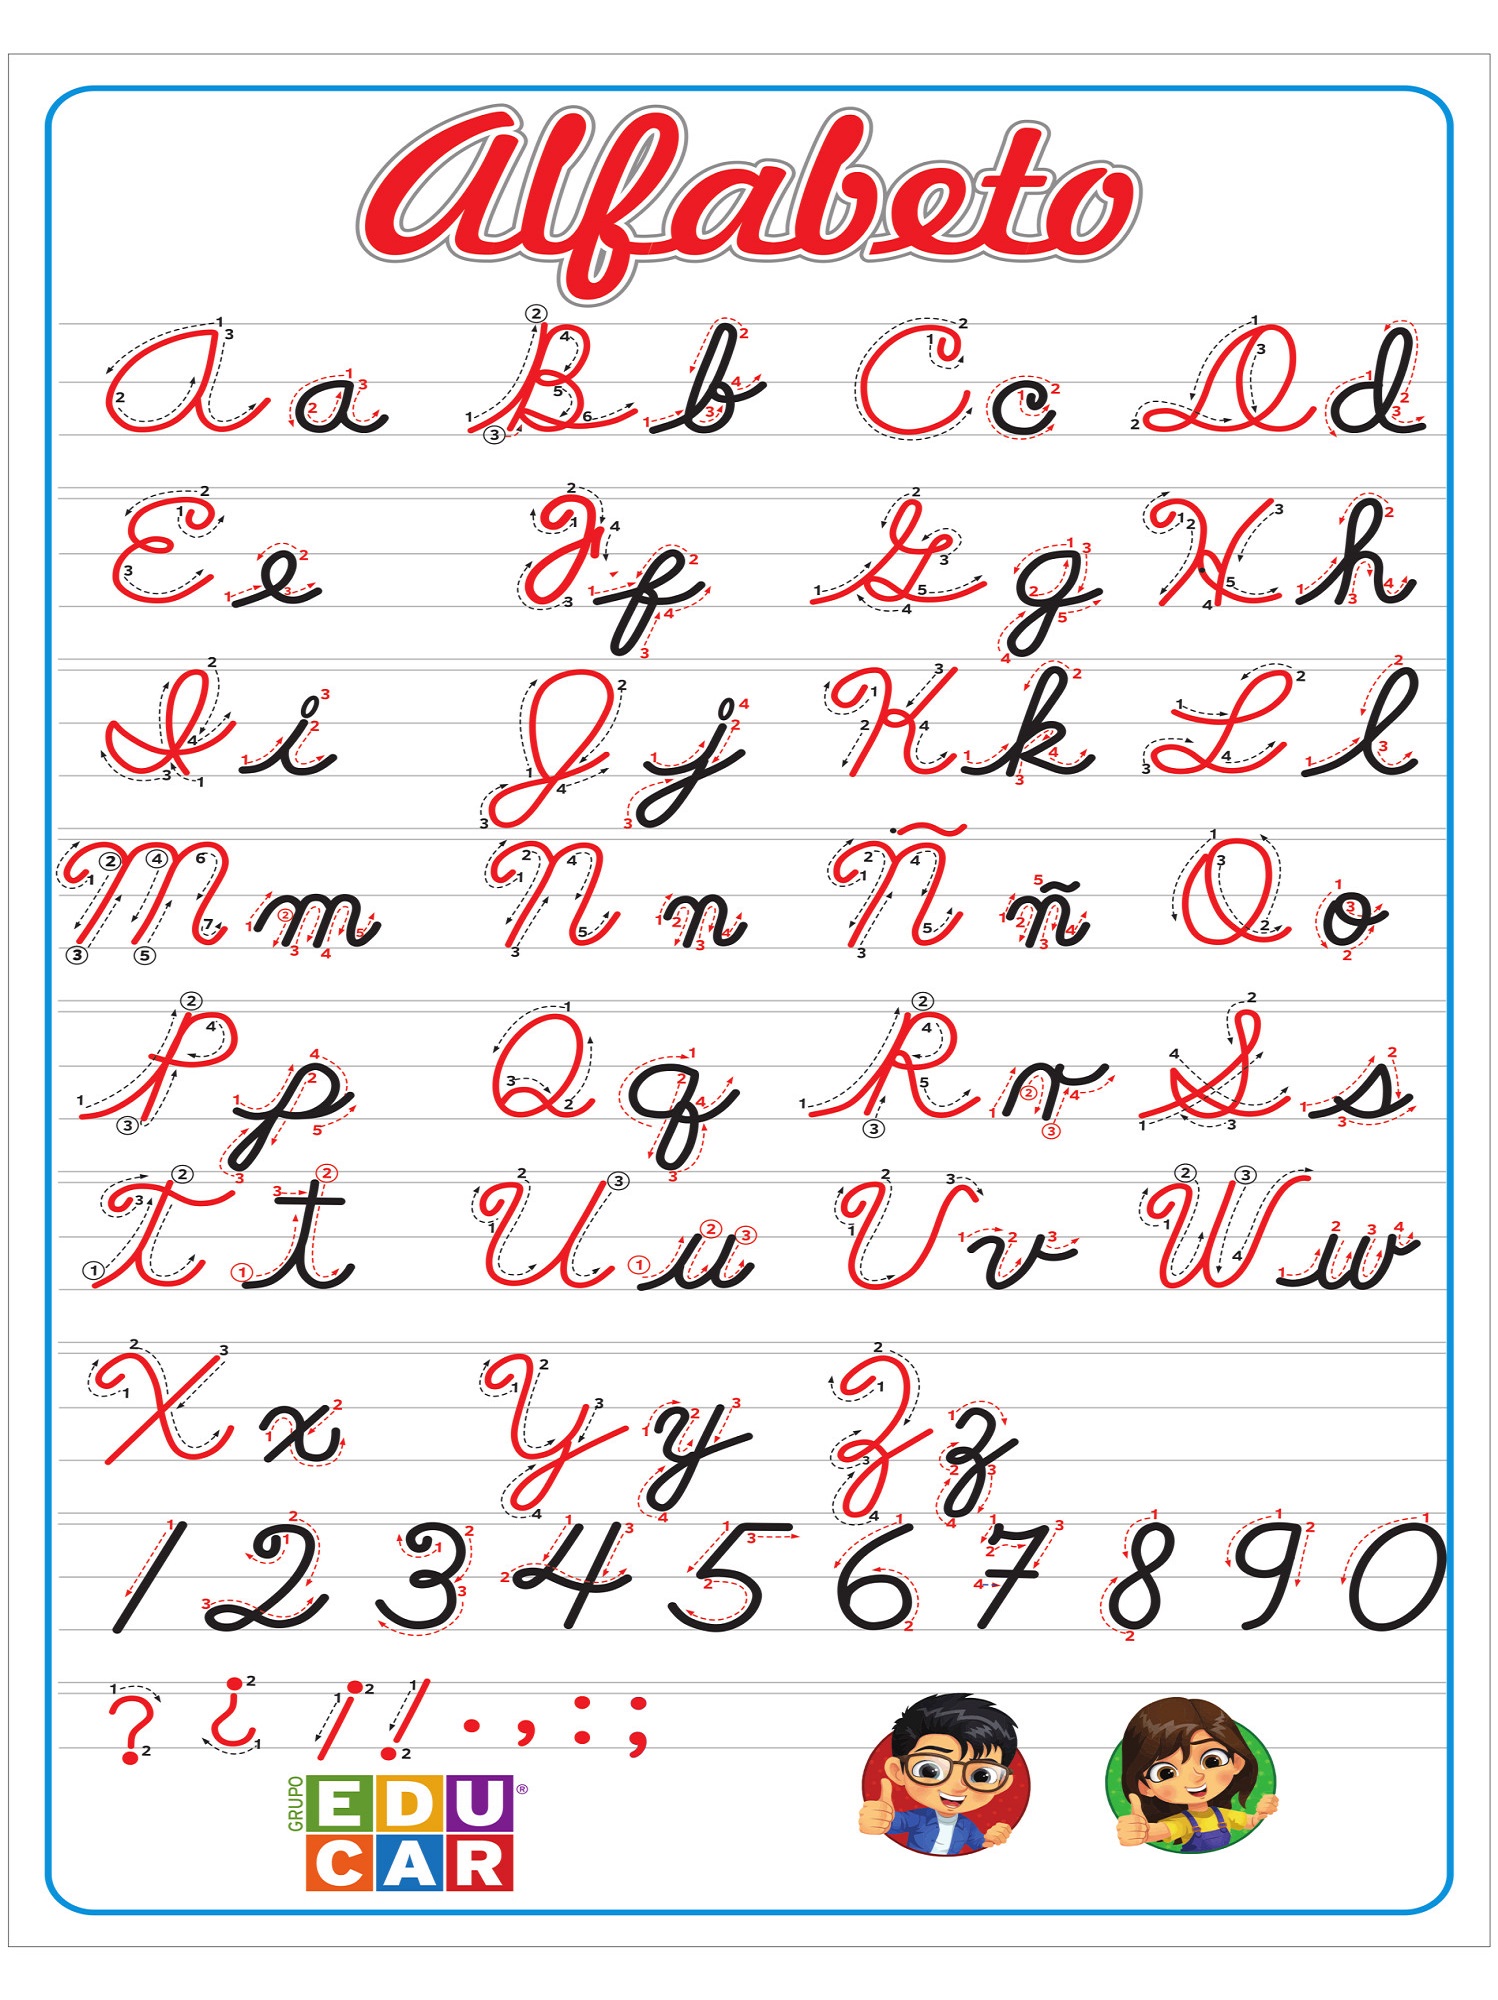 Alfabeto
A a B b C c D d
E e F f G g H h
I i J j K k L l
M m N n Ñ ñ O o
P p Q q R r S s
T t U u V v W w
X x Y y Z z
1 2 3 4 5 6 7 8 9 0
? ¿ ¡ ! . , : ;
GRUPO EDUCAR®